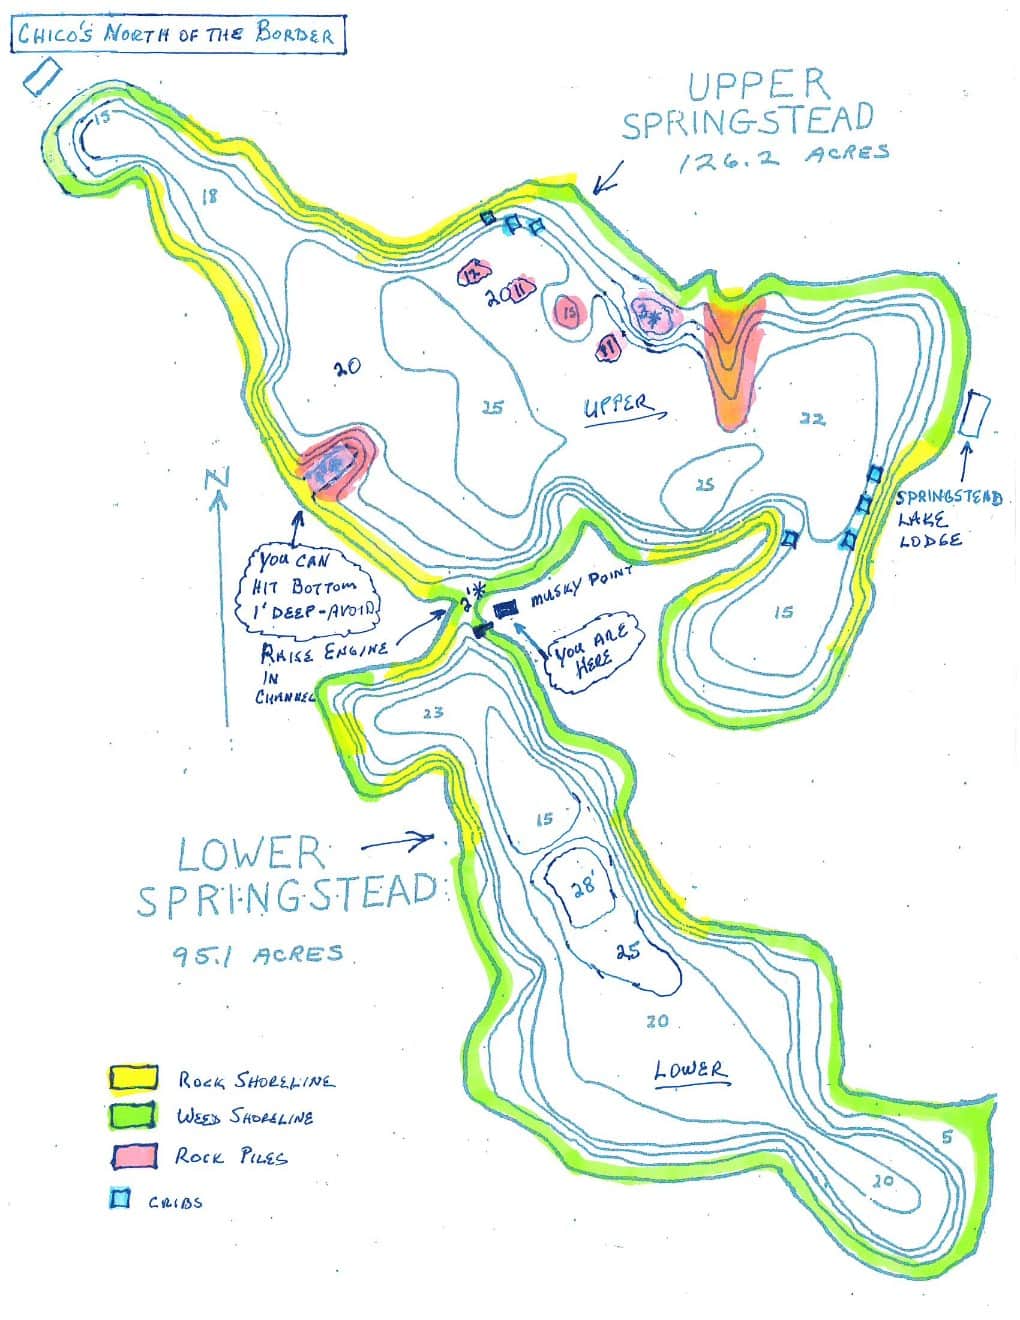 CHICO'S NORTH OF THE BORDER
UPPER
SPRINGSTEAD
126.2 ACRES
15
18
12
20
11
15
2*
11
20
25
UPPER
22
25
N
SPRINGSTEAD
LAKE
LODGE
YOU CAN
HIT BOTTOM
1' DEEP-AVOID
2'*
MUSKY POINT
15
RAISE ENGINE
IN
CHANNEL
YOU ARE
HERE
23
15
LOWER
SPRINGSTEAD
95.1 ACRES
28'
25
20
LOWER
ROCK SHORELINE
WEED SHORELINE
ROCK PILES
CRIBS
5
20